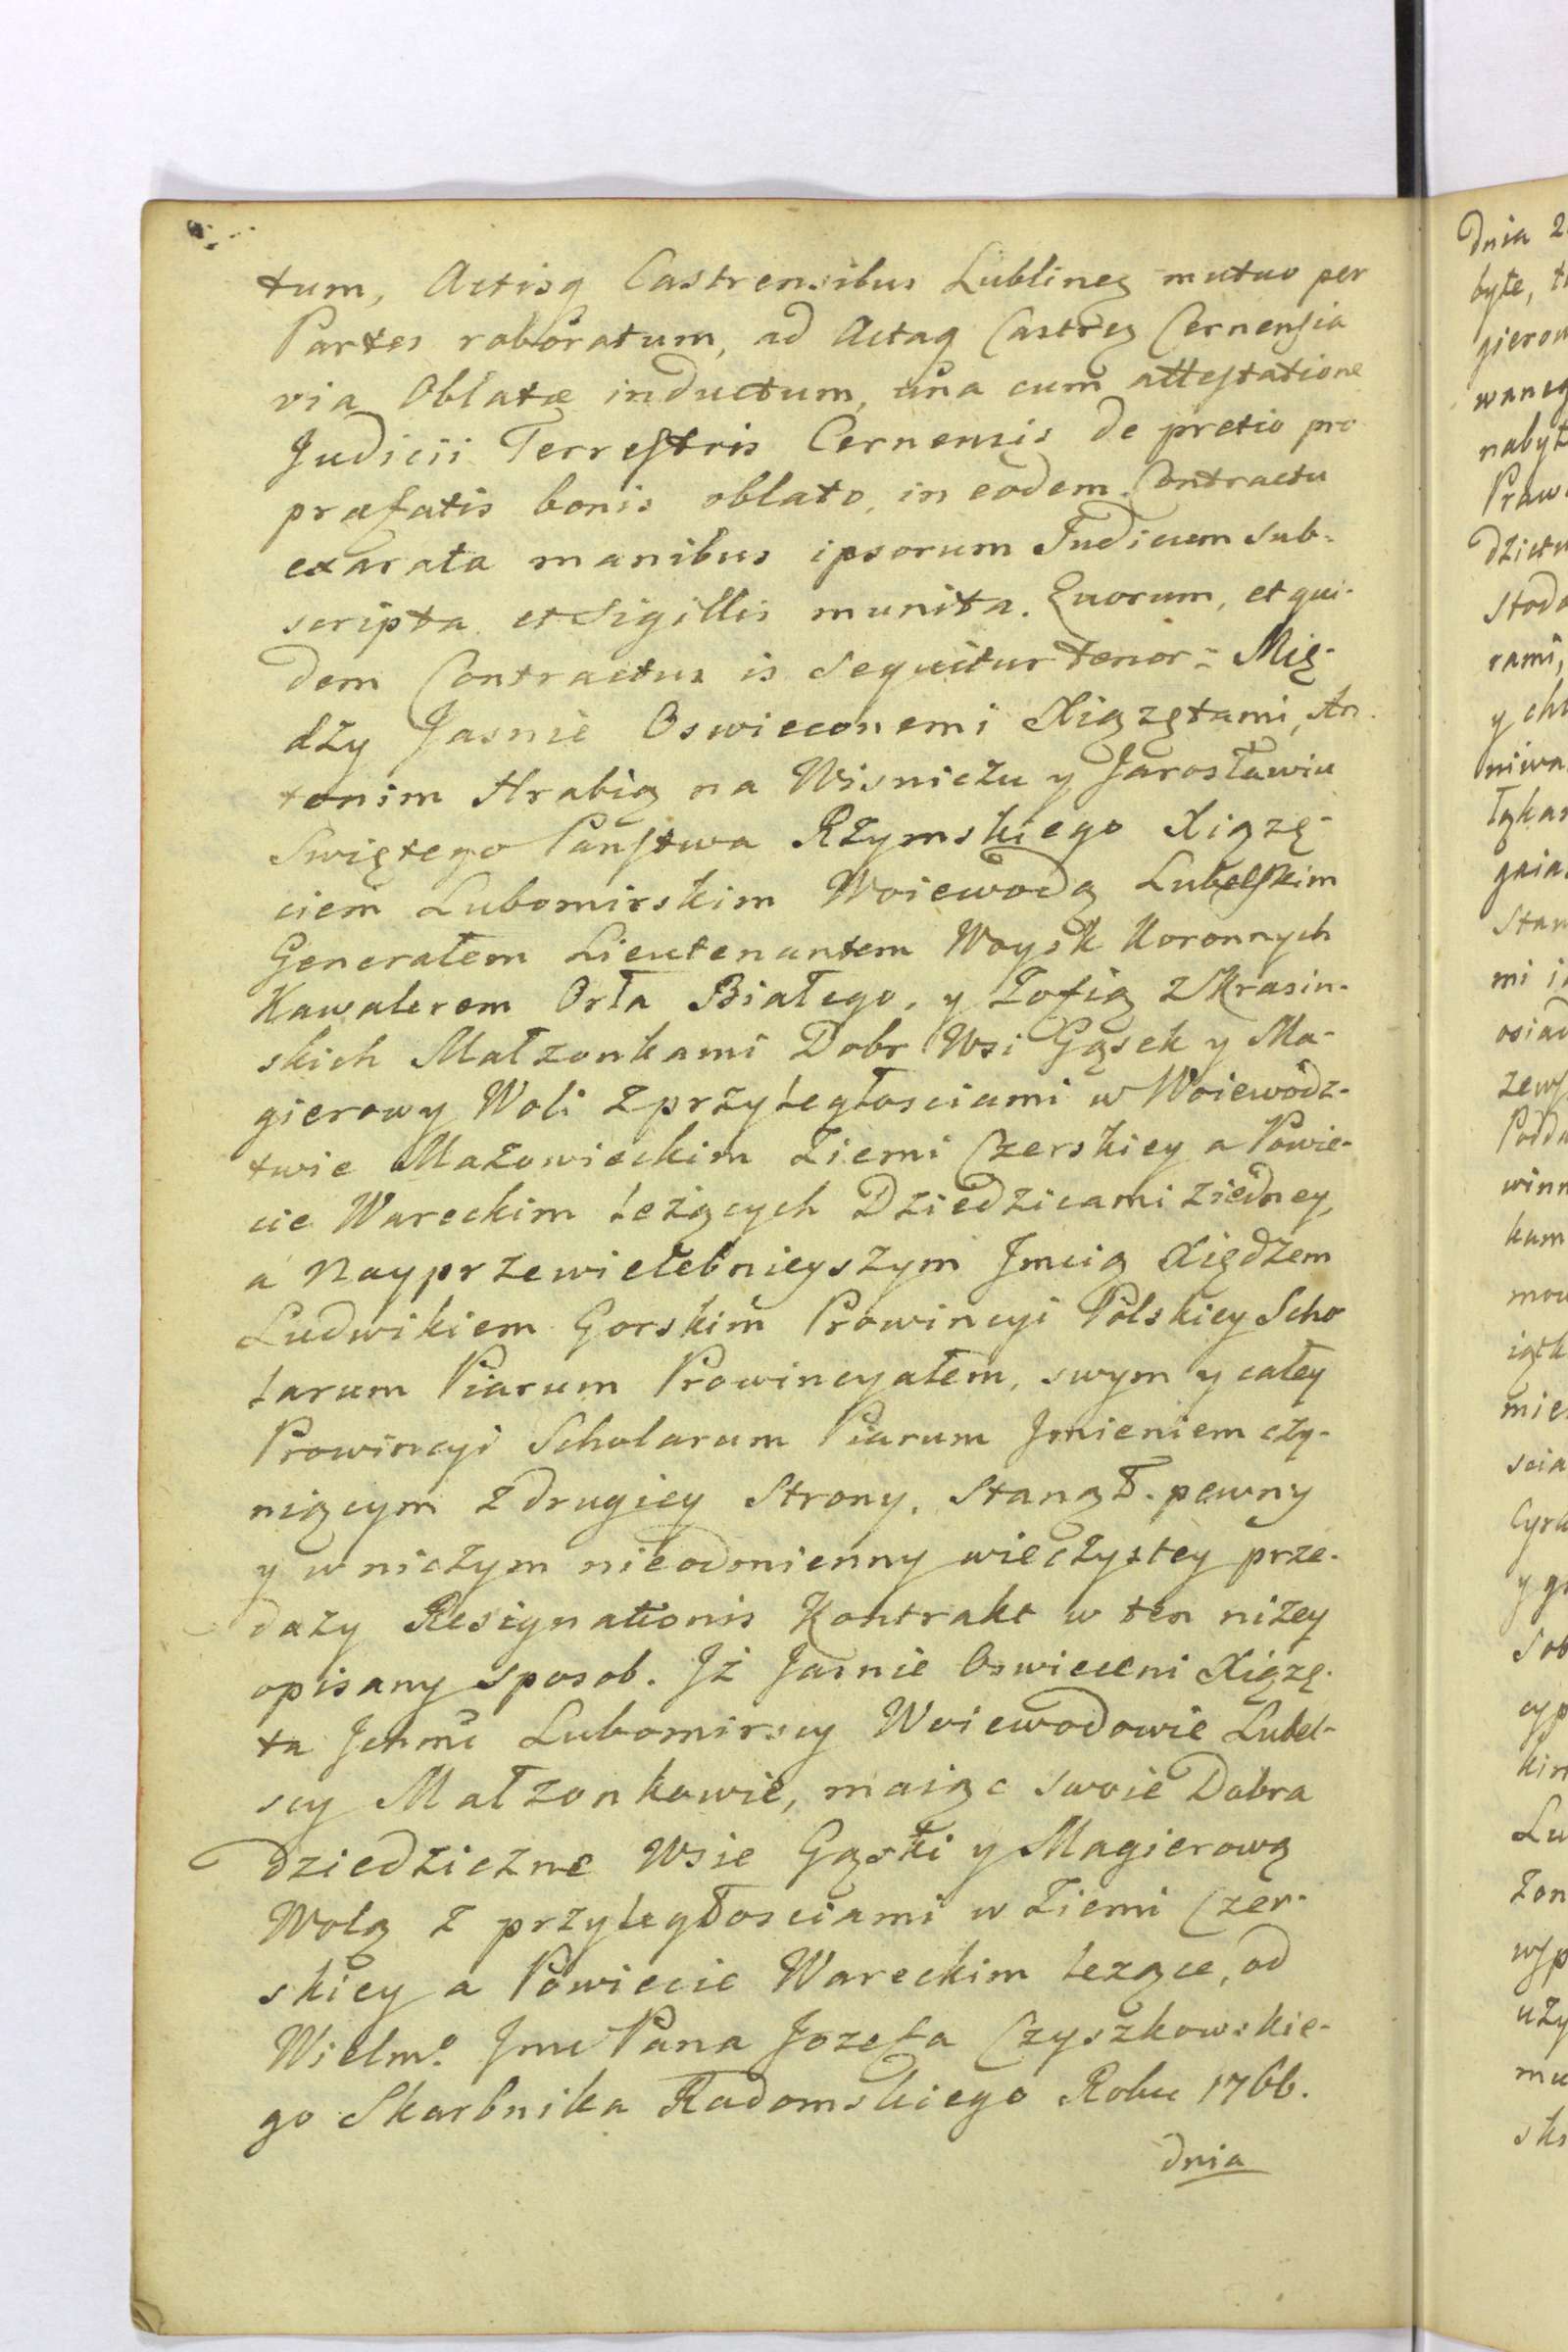 tum, Actisq Castrensibus Lublineg mutuo per
Partes roboratum, ad Actaq Castreg Cernensia
via Oblatæ inductum, una cum attestatione
Judicii Terrestris Cernensis de pretio pro
præfatis bonis oblato, in eodem Contractu
exarata manibus ipsorum Judicum sub-
scripta et Sigillis munita. Quorum, et qui-
dem Contractus is sequitur tenor = Mię-
dzy Jasnie Oswieconemi Xiązętami, An-
tonim Hrabią na Wisniczu y Jarosławiu
Swiętego Państwa Rzymskiego Xiązę-
ciem Lubomirskim Woiewodą Lubelskim
Generałem Lieutenantem Woysk Koronnych
Kawalerem Orła Białego, y Zofią z Krasin-
skich Małzonkami Dobr Wsi Gąsek y Ma-
gierowy Woli z przyległosciami w Woiewodz-
twie Mazowieckim Ziemi Czerskiey a Powie-
cie Wareckim leżących Dziedzicami z iedney,
a Nayprzewielebnieyszym Jmcią Xiędzem
Ludwikiem Gorskim Prowincyi Polskiey Scho
larum Piarum Prowincyałem, swym y całey
Prowincyi Scholarum Piarum Jmieniem czy-
niącym z drugiey Strony, stanął pewny
y w niczym nieodmienny wieczystey prze-
dazy Resignationis Kontrakt w ten nizey
opisany sposob. Jż Jasnie Oswieceni Xiązę-
ta Jchmć Lubomirscy Woiewodowie Lubel-
scy Małzonkowie, maiąc swoie Dobra
dziedziczne Wsie Gąski y Magierową
Wolą z przyległosciami w Ziemi Czer-
skiey a Powiecie Wareckim lezące, od
Wielmo. Jmc Pana Jozefa Czyszkowskie-
go Skarbnika Radomskiego Roku 1766.
dnia
Dnia 2
byte, t
gierow
waneg
nabyt
Praw
dzictw
Stodo
rami,
y chl
niwa
łąkar
gaia
Stan
mi i
osiad
zewſ
Podd
winn
kam
mow
iątk
mie
scia
Cyra
y gr
sob
cyp
kin
Lu
zon
wyp
uzy
mu
sko